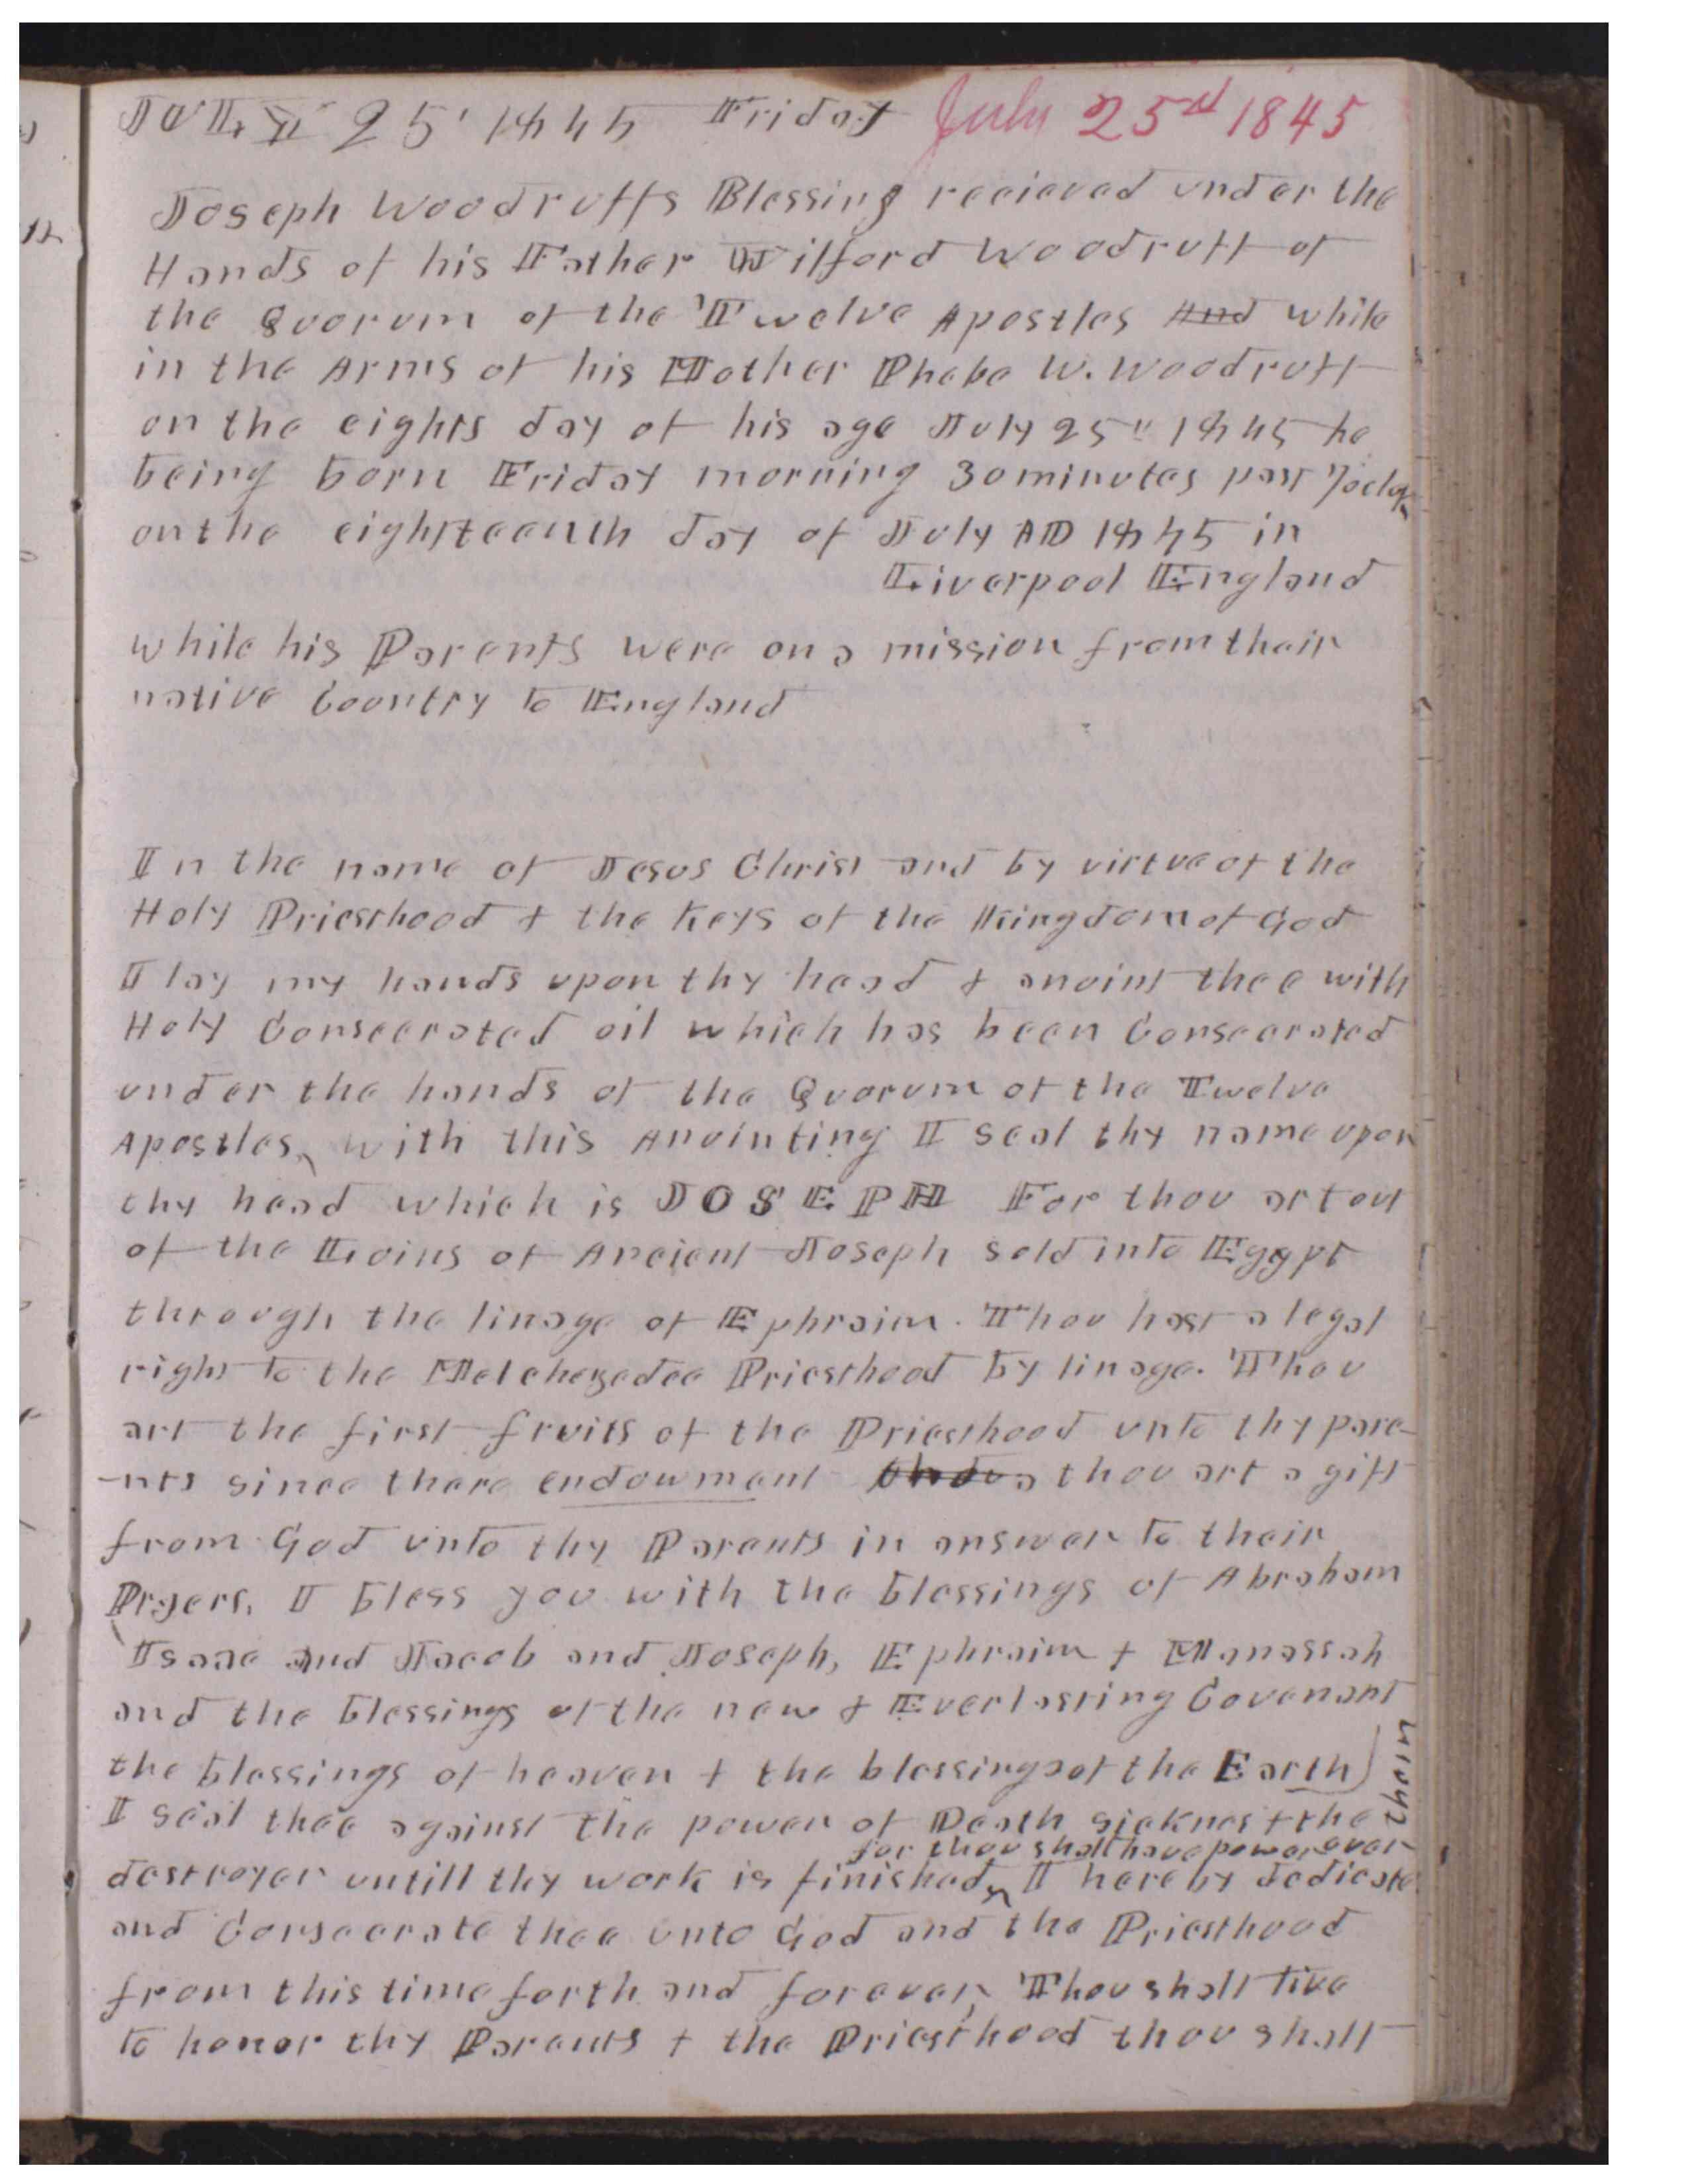 JULY 25' 1845 Friday July 25th 1845
Joseph Woodruffs Blessing recieved under the
Hands of his Father Wilford Woodruff of
the Quorum of the Twelve Apostles And while
in the Arms of his Mother Phebe W. Woodruff
on the eights day of his age July 25th 1845 he
being born Friday morning 30 minutes past 7 oclok
on the eighsteenth day of July AD 1845 in
Liverpool England
while his Parents were on a mission from thair
native Country to England
In the name of Jesus Christ and by virtue of the
Holy Priesthood + the Keys of the Kingdom of God
I lay my hands upon thy head + anoint thee with
Holy Consecrated oil which has been Consecrated
under the hands of the Quorum of the Twelve
Apostles, with this Anointing I seal thy name upon
thy head which is JOSEPH For thou art out
of the Loins of Ancient Joseph sold into Egypt
through the linage of Ephraim. Thou hast a legal
right to the Melchezedec Priesthood by linage. Thou
art the first fruits of the Priesthood unto thy pare-
-nts since there endowment thou art a gift
from God unto thy Parents in answer to their
Pryers, I bless you with the blessings of Abraham
Isaac and Jacob and Joseph, Ephraim + Manassah
and the blessings of the new + Everlasting Covenant
the blessings of heaven + the blessings of the Earth)
I seal thee against the power of Death sickness + the
for thou shalt have power over
destroyer untill thy work is finished, I hereby dedicate
and Consecrate thee unto God and the Priesthood
from this time forth and forever, Thou shall live
to honor thy Parents + the Priesthood thou shall